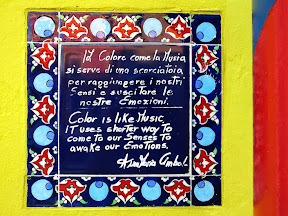 il Colore come la Musica,
si serve di una scorciatoia,
per raggiungere i nostri
Sensi e suscitare le
nostre Emozioni.
Color is like Music,
IT uses shorter way To
come To our Senses To
awake our Emotions.